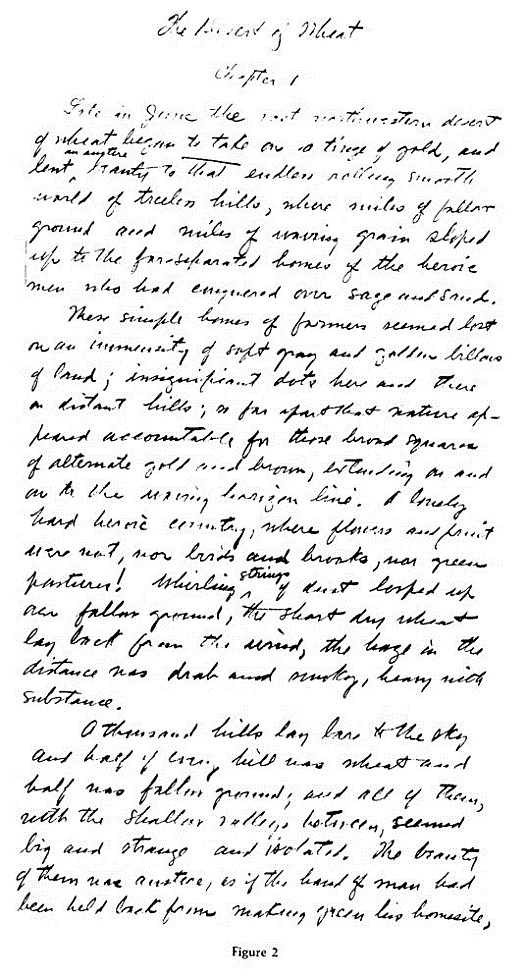 The Desert of Wheat
Chapter 1
Late in June the vast northwestern desert
of wheat began to take on a tinge of gold, and
lent an austere beauty to that endless rolling smooth
world of treeless hills, where miles of fallow
ground and miles of waving grain sloped
up to the far-separated homes of the heroic
men who had conquered over sage and sand.
These simple homes of farmers seemed lost
on an immensity of soft gray and golden billows
of land; insignificant dots here and there
on distant hills; so far apart that nature ap-
peared accountable for those broad squares
of alternate gold and brown, extending on and
on to the waving horizon line. A lonely
hard heroic country, where flowers and fruit
were not, nor birds and brooks, nor green
pastures! Whirling strings of dust looped up
over fallow ground, the short dry wheat
lay back from the wind, the haze in the
distance was drab and smoky, heavy with
substance.
A thousand hills lay bare to the sky
and half of every hill was wheat and
half was fallow ground; and all of them,
with the shallow valleys between, seemed
big and strange and isolated. The beauty
of them was austere, as if the hand of man had
been held back from making green his homesite,
Figure 2